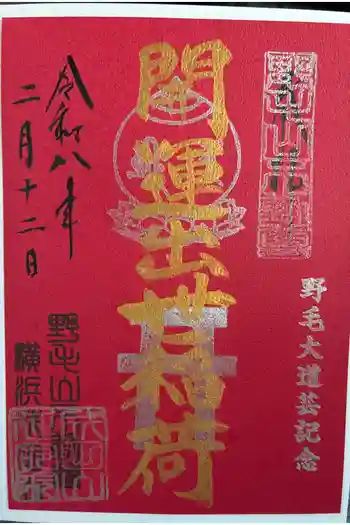 野毛大道芸記念
開運出世稲荷
令和八年
二月十二日
野毛山不動尊
横浜成田山